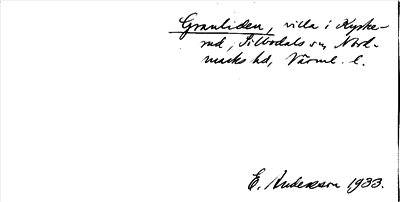 Granliden, villa i Kyrke-
rud, Silbodals sn, Nord-
marks hd, Värml. l.
E. Andersson 1933.